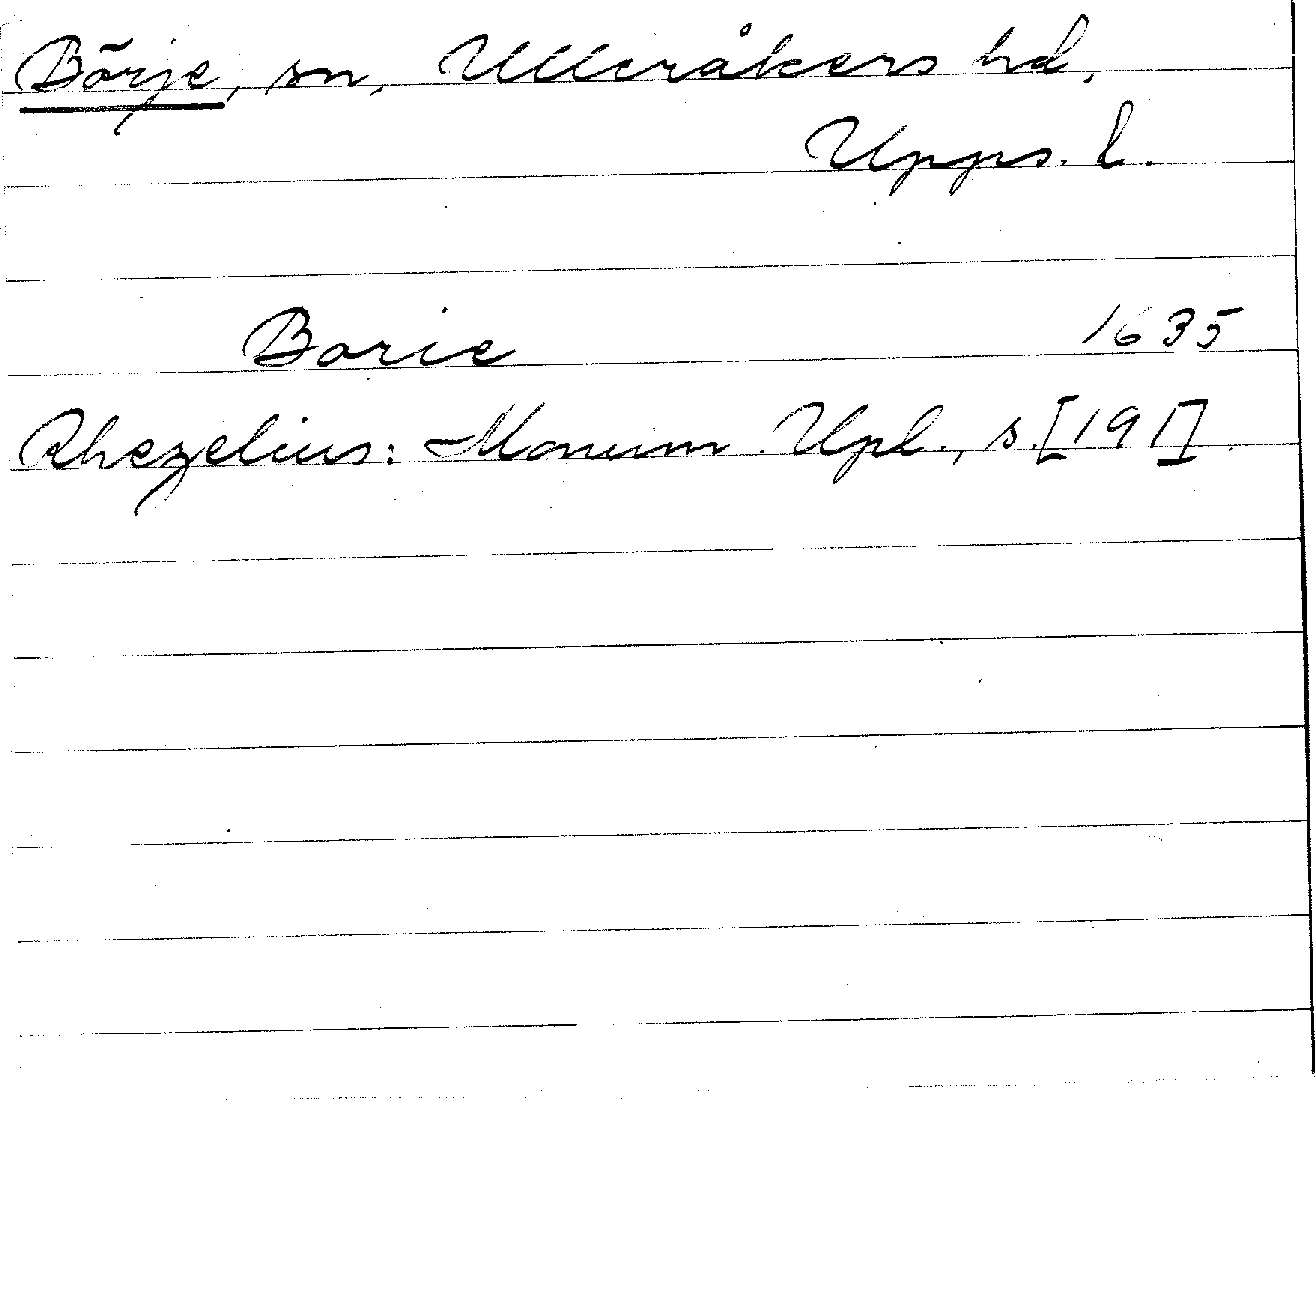 Börje, sn, Ulleråkers hd,
Upps. l.
Borie 1635
Rhezelius: Monum. Upl., s. [191].